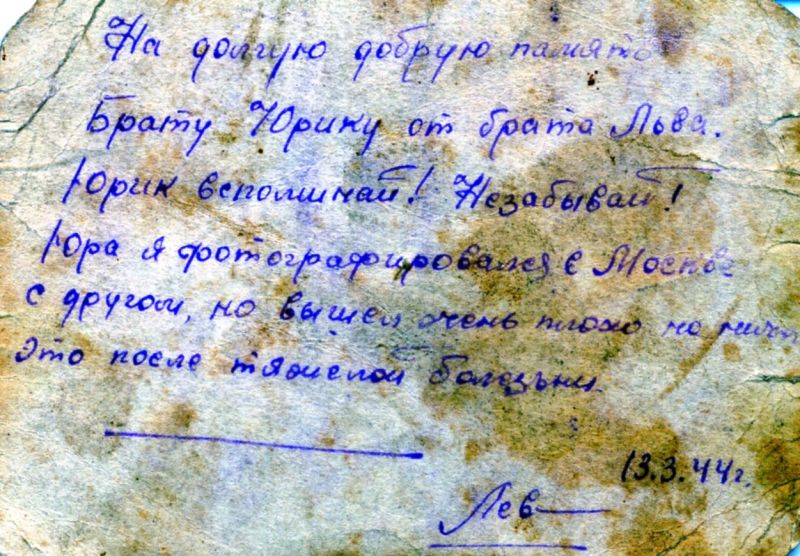 На долгую добрую память
Брату Юрику от брата Льва.
Юрик вспоминай! Незабывай!
Юра я фотографировался в Москве
с другом, но вышел очень плохо но ничего
Это после тяжелой болезьни.
13.3.44г.
Лев